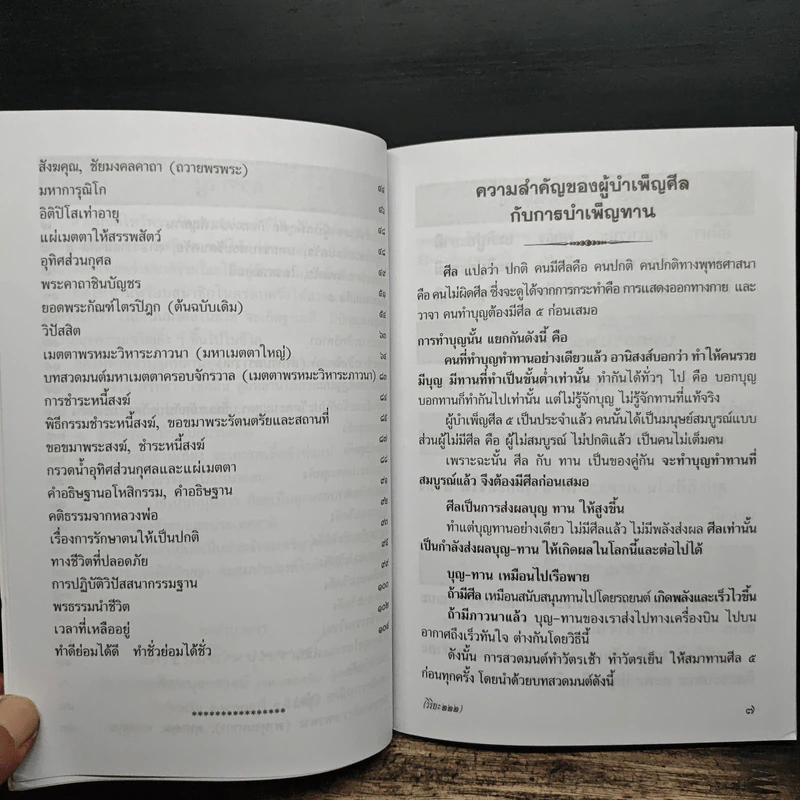 สังฆคุณ, ชัยมงคลคาถา (ถวายพรพระ)
มหาการุณิโก
อิติปิโสเท่าอายุ
แผ่เมตตาให้สรรพสัตว์
อุทิศส่วนกุศล
พระคาถาชินบัญชร
ยอดพระกัณฑ์ไตรปิฎก (ต้นฉบับเดิม)
วิปัสสิต
เมตตาพรหมะวิหาระภาวนา (มหาเมตตาใหญ่)
บทสวดมนต์มหาเมตตาครอบจักรวาล (เมตตาพรหมะวิหาระภาวนา)
การชำระหนี้สงฆ์
พิธีกรรมชำระหนี้สงฆ์, ขอขมาพระรัตนตรัยและสถานที่
ขอขมาพระสงฆ์, ชำระหนี้สงฆ์
กรวดน้ำอุทิศส่วนกุศลและแผ่เมตตา
คำอธิษฐานอโหสิกรรม, คำอธิษฐาน
คติธรรมจากหลวงพ่อ
เรื่องการรักษาตนให้เป็นปกติ
ทางชีวิตที่ปลอดภัย
การปฏิบัติวิปัสสนากรรมฐาน ๑๐๐
พรธรรมนำชีวิต ๑๐๒
เวลาที่เหลืออยู่ ๑๐๔
ทำดีย่อมได้ดี ทำชั่วย่อมได้ชั่ว
****************
ความสำคัญของผู้บำเพ็ญศีล
กับการบำเพ็ญทาน
ศีล แปลว่า ปกติ คนมีศีลคือ คนปกติ คนปกติทางพุทธศาสนา
คือ คนไม่ผิดศีล ซึ่งจะดูได้จากการกระทำคือ การแสดงออกทางกาย และ
วาจา คนทำบุญต้องมีศีล ๕ ก่อนเสมอ
การทำบุญนั้น แยกกันดังนี้ คือ
คนที่ทำบุญทำทานอย่างเดียวแล้ว อานิสงส์บอกว่า ทำให้คนรวย
มีบุญ มีทานที่ทำเป็นขั้นต่ำเท่านั้น ทำกันได้ทั่วๆ ไป คือ บอกบุญ
บอกทานก็ทำกันไปเท่านั้น แต่ไม่รู้จักบุญ ไม่รู้จักทานที่แท้จริง
ผู้บำเพ็ญศีล ๕ เป็นประจำแล้ว คนนั้นได้เป็นมนุษย์สมบูรณ์แบบ
ส่วนผู้ไม่มีศีล คือ ผู้ไม่สมบูรณ์ ไม่ปกติแล้ว เป็นคนไม่เต็มคน
เพราะฉะนั้น ศีล กับ ทาน เป็นของคู่กัน จะทำบุญทำทานที่
สมบูรณ์แล้ว จึงต้องมีศีลก่อนเสมอ
ศีลเป็นการส่งผลบุญ ทาน ให้สูงขึ้น
ทำแต่บุญทานอย่างเดียว ไม่มีศีลแล้ว ไม่มีพลังส่งผล ศีลเท่านั้น
เป็นกำลังส่งผลบุญ-ทาน ให้เกิดผลในโลกนี้และต่อไปได้
บุญ-ทาน เหมือนไปเรือพาย
ถ้ามีศีล เหมือนสนับสนุนทานไปโดยรถยนต์ เกิดพลังและเร็วไวขึ้น
ถ้ามีภาวนาแล้ว บุญ-ทานของเราส่งไปทางเครื่องบิน ไปบน
อากาศถึงเร็วทันใจ ต่างกันโดยวิธีนี้
ดังนั้น การสวดมนต์ทำวัตรเช้า ทำวัตรเย็น ให้สมาทานศีล ๕
ก่อนทุกครั้ง โดยนำด้วยบทสวดมนต์ดังนี้
(วิริยะ๒๒๒) ๗